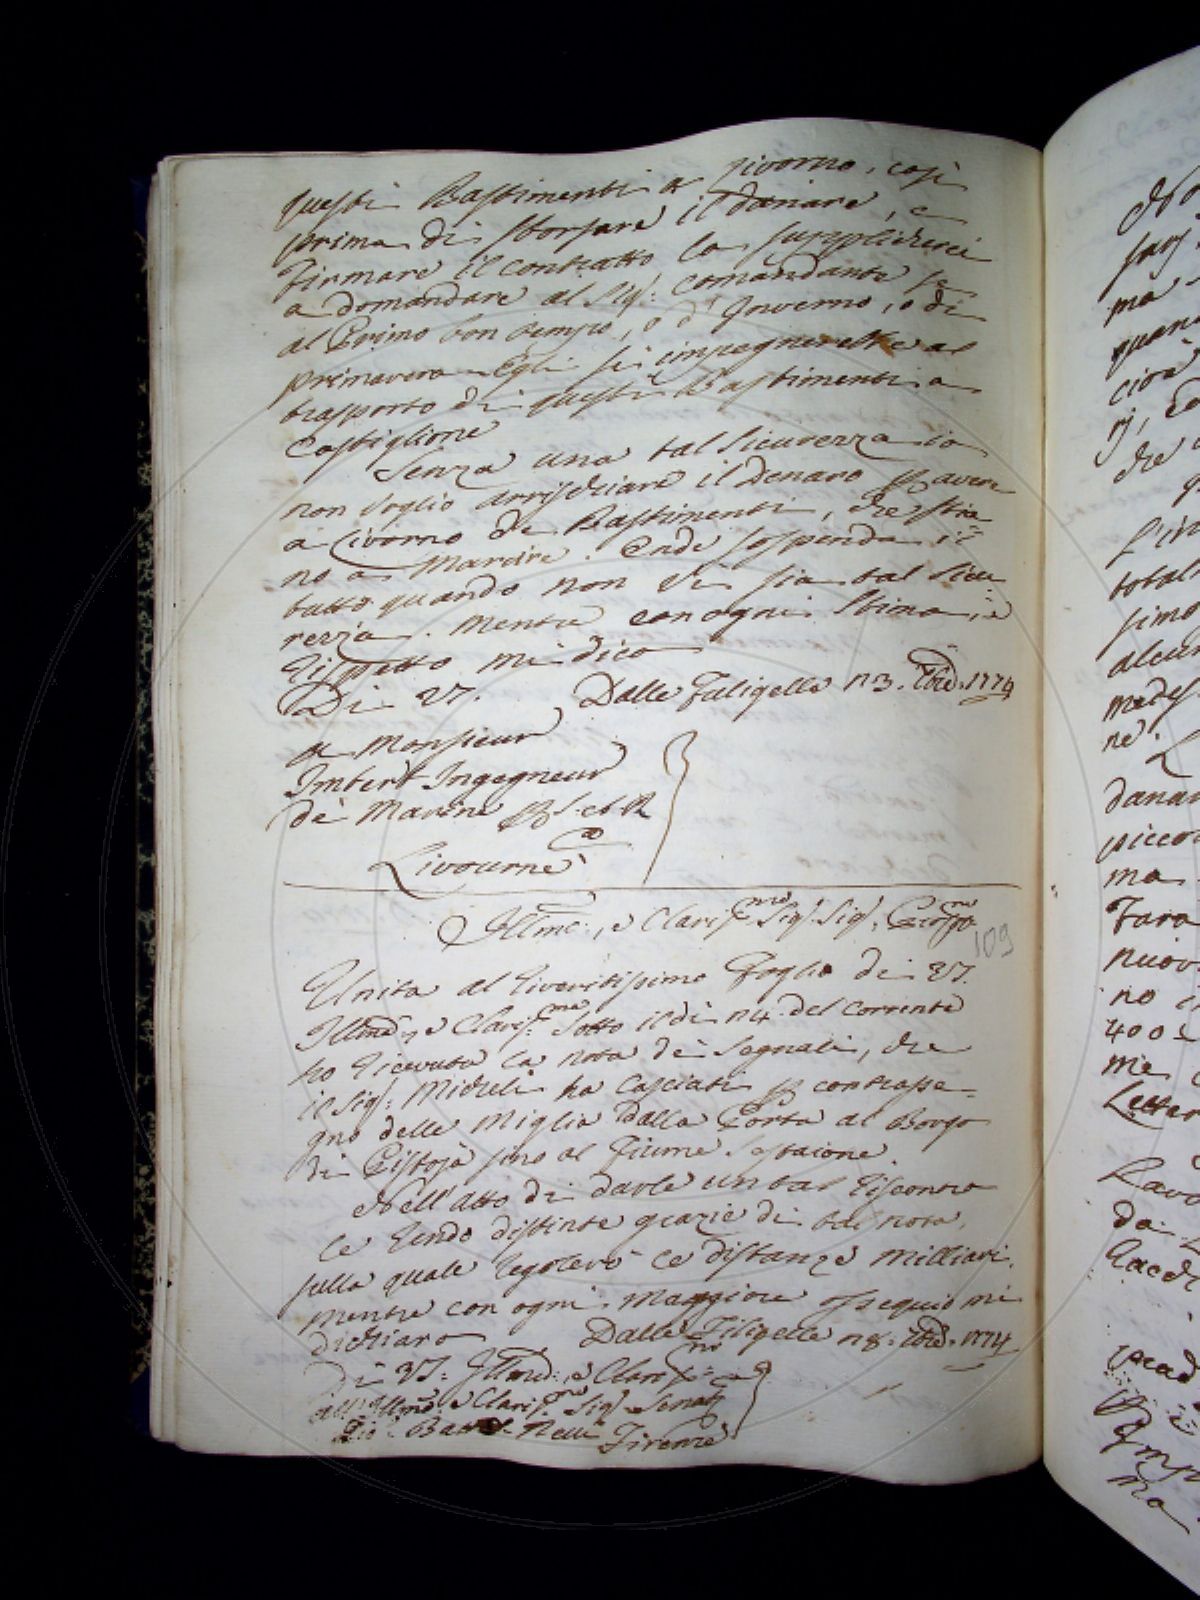 questi Bastimenti a Livorno, così
prima di sborsare il danaro, e
firmare il contratto la supplicherei
a domandare al Sig: Comandante se
al Primo bon tempo, o d'Inverno, o di
primavera Egli si impegnerebbe al
trasporto di questi Bastimenti a
Castiglione
Senza una tal sicurezza io
non voglio arrischiare il Denaro per avere
a Livorno de Bastimenti, che stia=
no a Marcire. Onde sospenda il
tutto quando non vi sia tal sicu=
rezza. Mentre con ogni stima, e
rispetto mi dico
Di VS. Dalle Filigelle 13. 1774
A Monsieur
Imbert Ingegneur
de Marine
Livourne
Illmo:, e Clarissmo Sig: Sig:
109
Unita al riveritissimo Foglio di VS.
Illma, e Clarissma sotto il dì 14 del corrente
ho ricevuta la nota de Segnali, che
il Sig: Micheli ha lasciati per contrasse=
gno delle Miglia dalla Porta al Borgo
di Pistoja sino al Fiume Sestaione
Nell'atto di darle un tal riscontro
le rendo distinte grazie di tal nota,
sulla quale regolerò le distanze milliari.
mentre con ogni maggiore ossequio mi
dichiaro Dalle Filigelle 18. 1774
Di VS: Illma:, e Clarissma
All'Illmo, e Clarissmo Sig: Senat:
Gio: Batt: Nelli Firenze
N
ma
ciò
che
total
simo
alcun
medes
ne.
danar
piccol
ma
fara
nuov
no
400
me
Letter
Lavo
da
ma